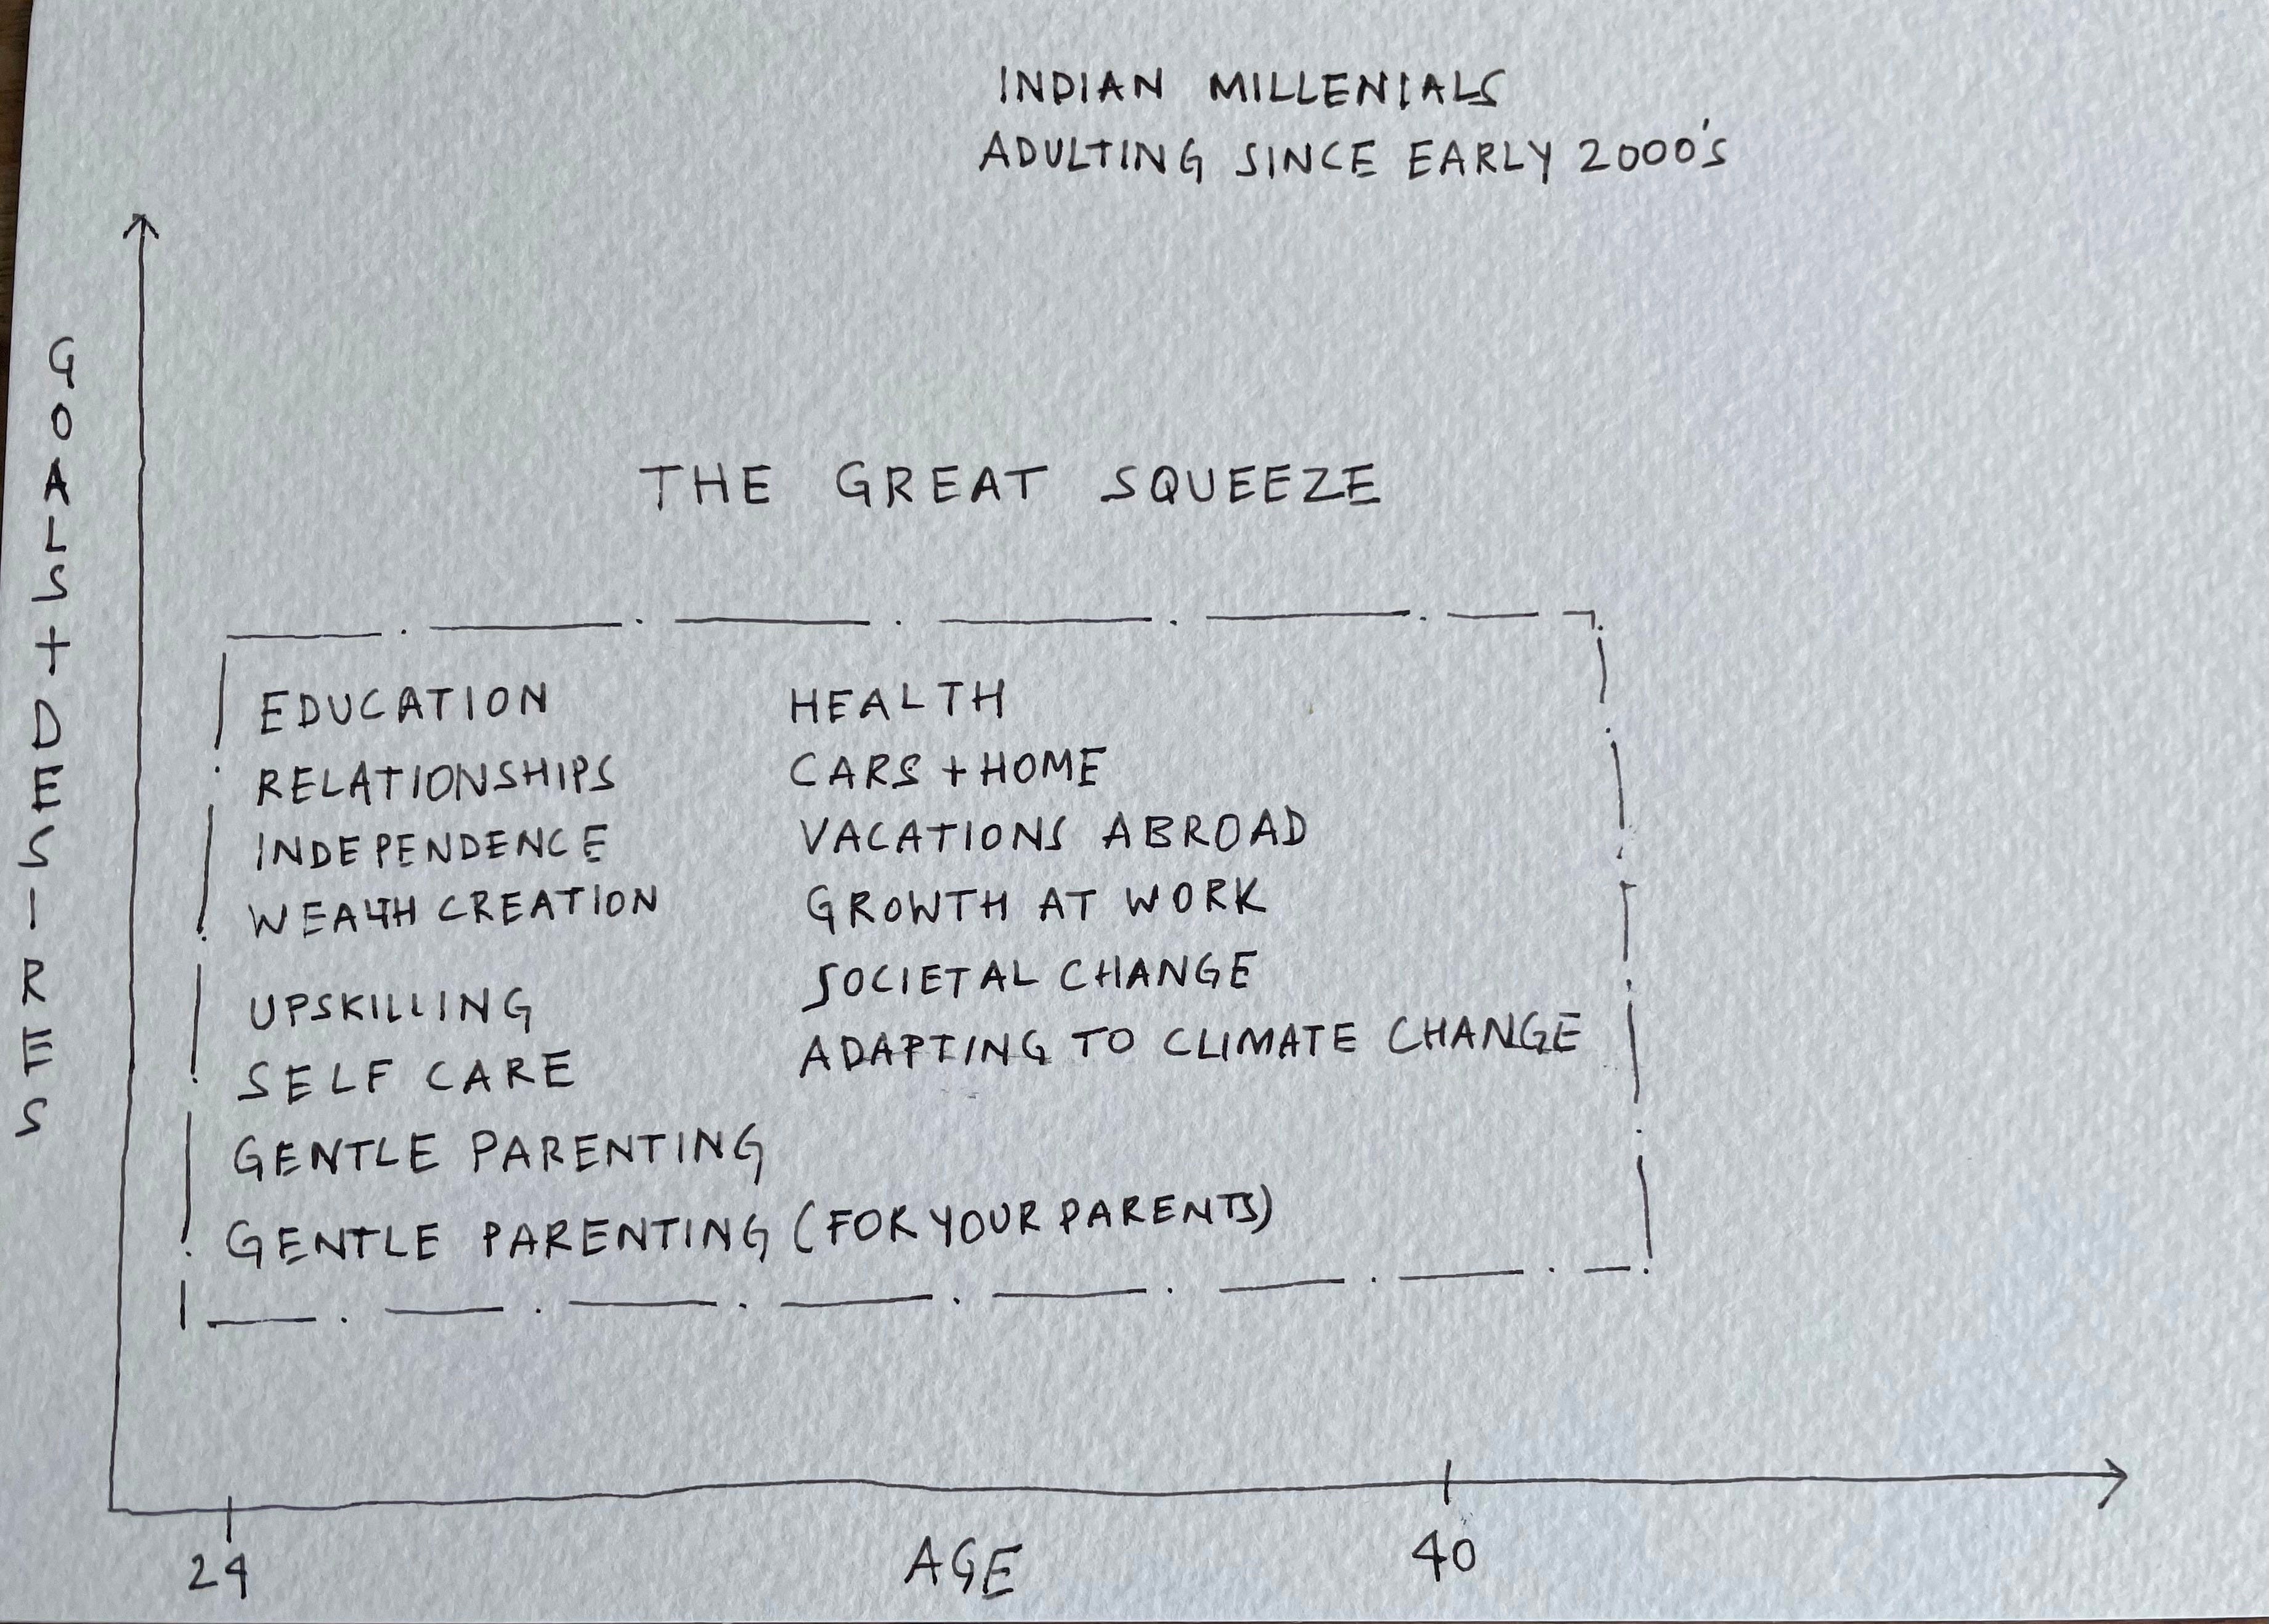 INDIAN MILLENIALS
ADULTING SINCE EARLY 2000'S
GOALS + DESIRES
THE GREAT SQUEEZE
EDUCATION
RELATIONSHIPS
INDEPENDENCE
WEALTH CREATION
UPSKILLING
SELF CARE
GENTLE PARENTING
GENTLE PARENTING (FOR YOUR PARENTS)
HEALTH
CARS + HOME
VACATIONS ABROAD
GROWTH AT WORK
SOCIETAL CHANGE
ADAPTING TO CLIMATE CHANGE
24
AGE
40